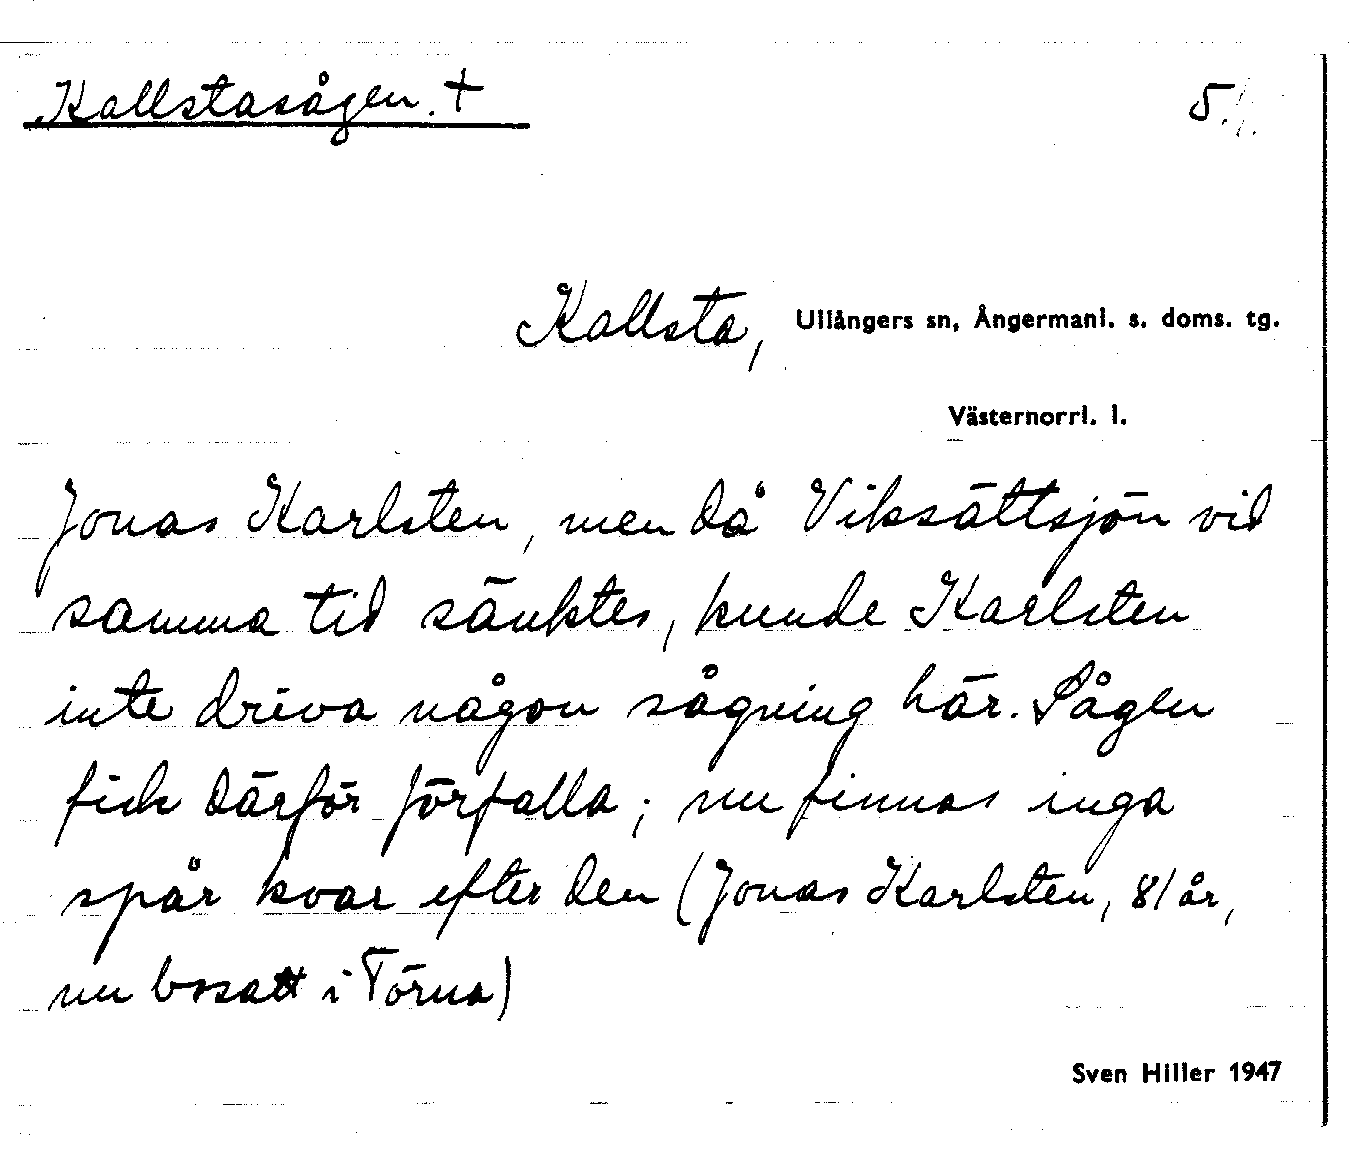 Kallstasågen. +
5.
Kallsta, Ullångers sn, Ångermanl. s. doms. tg.
Västernorrl. l.
Jonas Karlsten, men då Viksättsjön vid
samma tid sänktes, kunde Karlsten
inte driva någon sågning här. Sågen
fick därför förfalla; nu finnas inga
spår kvar efter den (Jonas Karlsten, 81 år,
nu bosatt i Törna)
Sven Hiller 1947